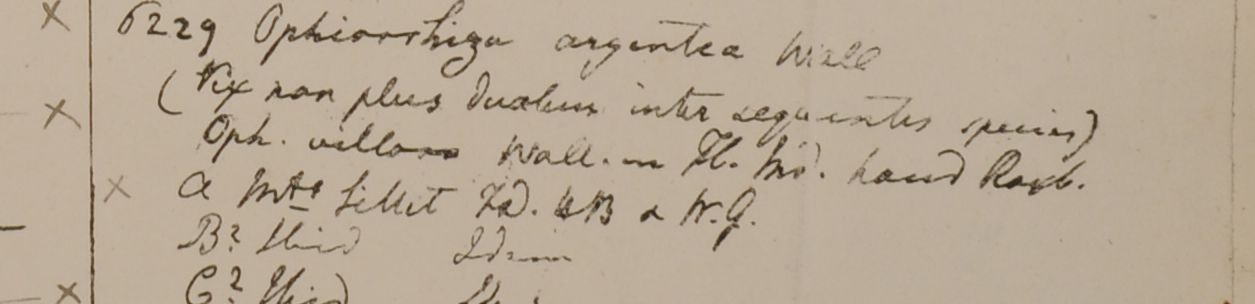 6229 Ophiorrhiza argentea Wall
(Vix non plus duabus inter sequentes species)
Oph. villosa Wall. in Fl. Ind. haud Roxb.
a Mts Sillet FD. & WG.
B? Ibid Idem
C? Ibid